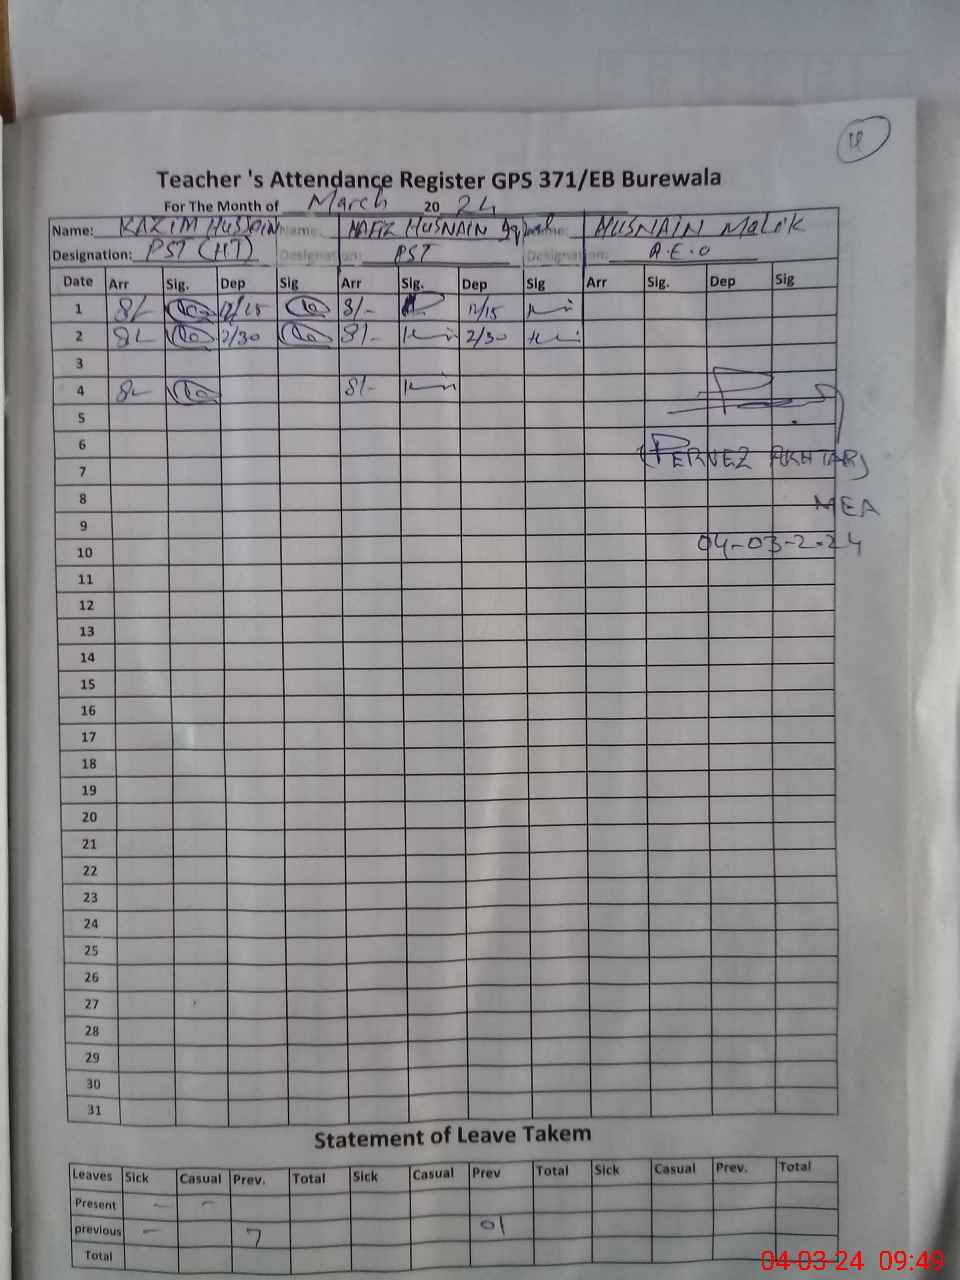 Teacher 's Attendance Register GPS 371/EB Burewala
For The Month of March 20 24
Name: KAZIM HUSSAIN Name: HAFIZ HUSNAIN Name: HUSNAIN Malik
Designation: PST (HT) Designation: PST Designation: A.E.O
Date Arr Sig. Dep Sig Arr Sig. Dep Sig Arr Sig. Dep Sig
1 8/- 12/15 8/- 12/15
2 8/- 2/30 8/- 2/30
3
4 8/- 8/-
5
6
7 (PERVEZ AKHTAR)
8
9 MEA
10 04-03-2024
11
12
13
14
15
16
17
18
19
20
21
22
23
24
25
26
27
28
29
30
31
Statement of Leave Takem
Leaves Sick Casual Prev. Total Sick Casual Prev Total Sick Casual Prev. Total
Present – –
previous – 7 01
Total
04-03-24 09:49